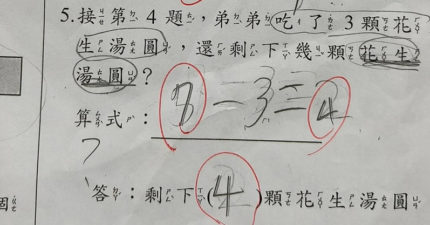 5.接第4題，弟弟吃了3顆花
生湯圓，還剩下幾顆花生
湯圓？
算式：8－3＝4
7
答：剩下(4)顆花生湯圓
個